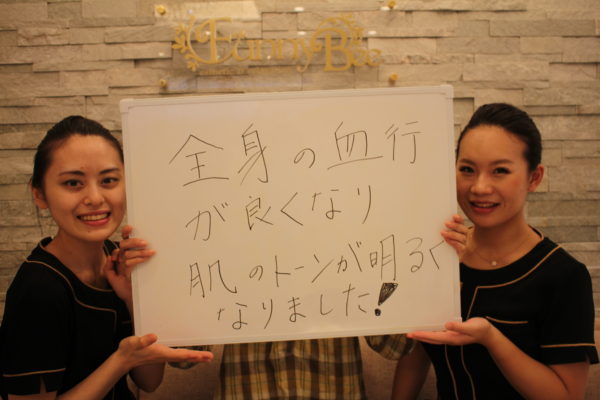 Funny Bee
全身の血行
が良くなり
肌のトーンが明るく
なりました!